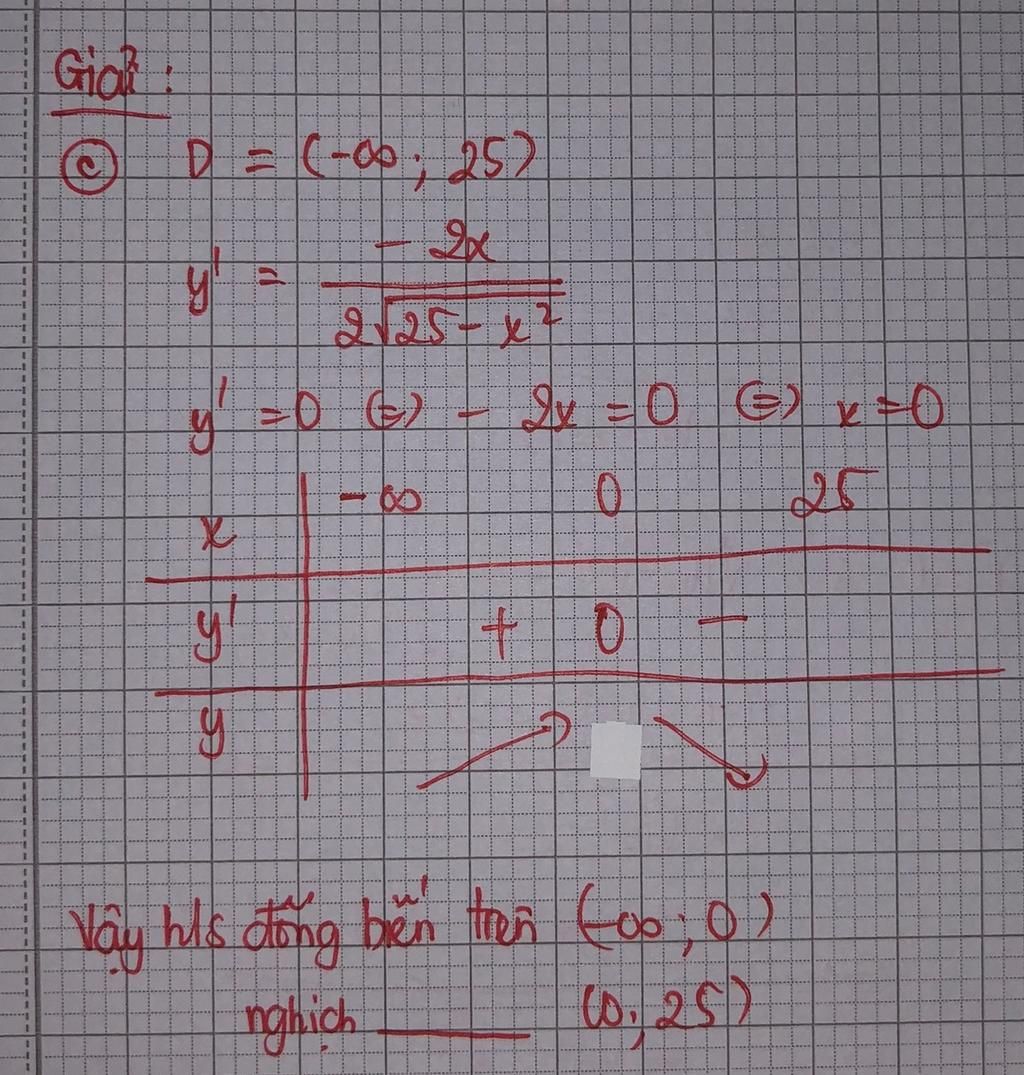 Giải :
ⓒ D = (-∞ ; 25)
y' = -2x / 2√25 - x²
y' = 0 ⇔ - 2x = 0 ⇔ x = 0
x -∞ 0 25
y' + 0 -
y
Vậy h/s đồng biến trên (-∞ ; 0)
nghịch ______ (0; 25)